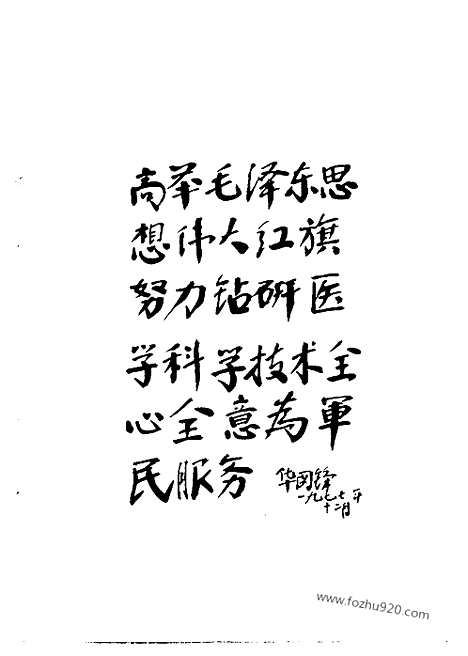 高举毛泽东思
想伟大红旗
努力钻研医
学科学技术全
心全意为軍
民服务
华国锋
一九七七年
十二月
www.fozhu920.com